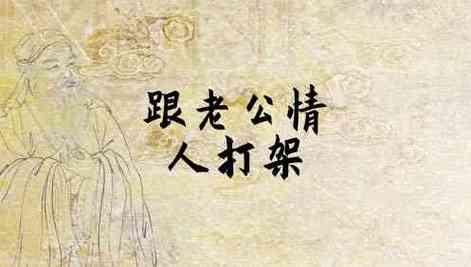 跟老公情
人打架